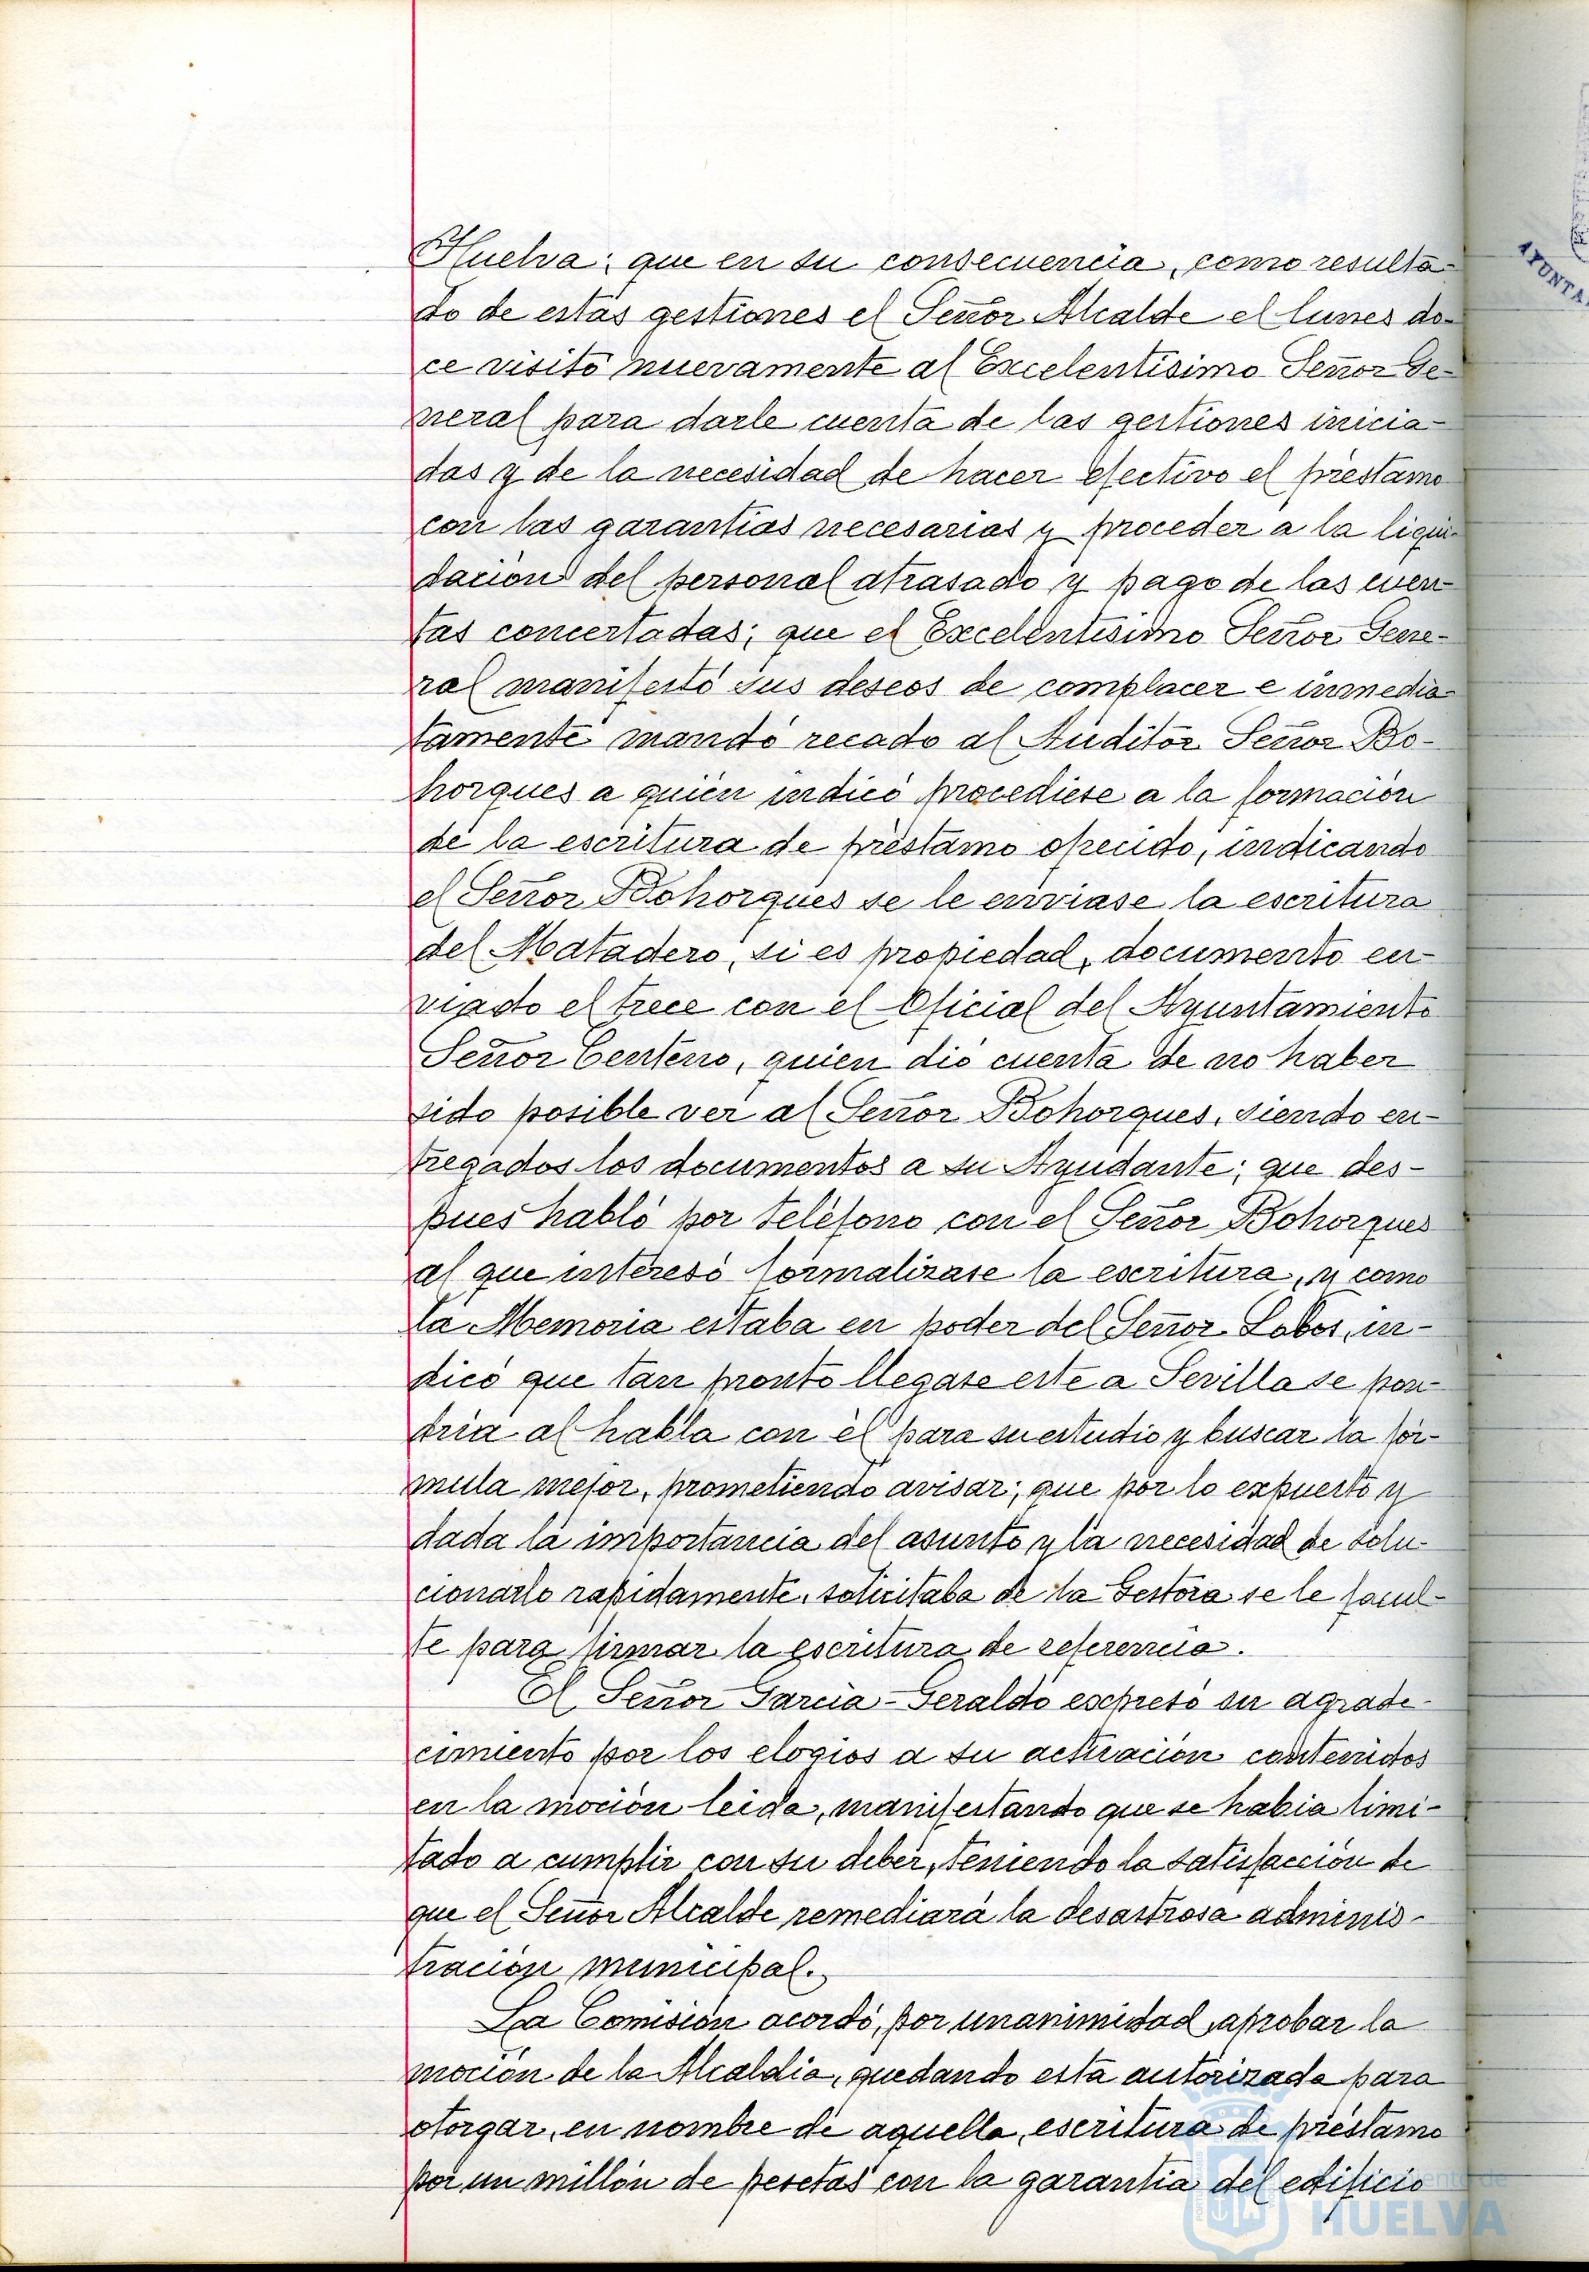 Huelva; que en su consecuencia, como resulta-
do de estas gestiones el Señor Alcalde el lunes do-
ce visitó nuevamente al Excelentisimo Señor Ge-
neral para darle cuenta de las gestiones inicia-
das y de la necesidad de hacer efectivo el prestamo
con las garantias necesarias y proceder a la liqui-
dacion del personal atrasado y pago de las cuen-
tas concertadas; que el Excelentisimo Señor Gene-
ral manifestó sus deseos de complacer e inmedia-
tamente mandó recado al Auditor Señor Bo-
horques a quien indicó procediese a la formación
de la escritura de préstamo ofrecido, indicando
el Señor Bohorques se le enviase la escritura
del Matadero, si es propiedad, documento en-
viado el trece con el Oficial del Ayuntamiento
Señor Centeno, quien dió cuenta de no haber
sido posible ver al Señor Bohorques, siendo en-
tregados los documentos a su Ayudante; que des-
pues habló por teléfono con el Señor Bohorques
al que interesó formalizase la escritura, y como
la Memoria estaba en poder del Señor Lobos, in-
dicó que tan pronto llegase este a Sevilla se pon-
dria al habla con él para su estudio y buscar la fór-
mula mejor, prometiendo avisar; que por lo expuesto y
dada la importancia del asunto y la necesidad de solu-
cionarlo rapidamente, solicitaba de la Gestora se le facul-
te para firmar la escritura de referencia.
El Señor Garcia-Geraldo expresó su agrade-
cimiento por los elogios a su actuación contenidos
en la moción leida, manifestando que se habia limi-
tado a cumplir con su deber, teniendo la satisfacción de
que el Señor Alcalde remediará la desastrosa adminis-
tración municipal.
La Comisión acordó, por unanimidad, aprobar la
moción de la Alcaldia, quedando esta autorizada para
otorgar, en nombre de aquella, escritura de préstamo
por un millón de pesetas con la garantia del edificio
AYUNTA
HUELVA